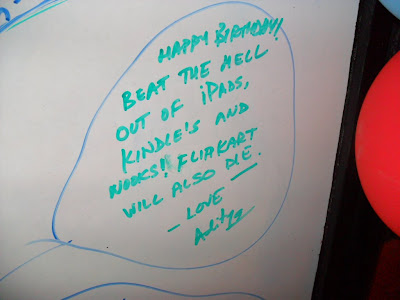 HAPPY BIRTHDAY!
BEAT THE HELL
OUT OF iPADS,
KINDLE'S AND
NOOKS!! FLIPKART
WILL ALSO DIE.
- LOVE -
Aditya